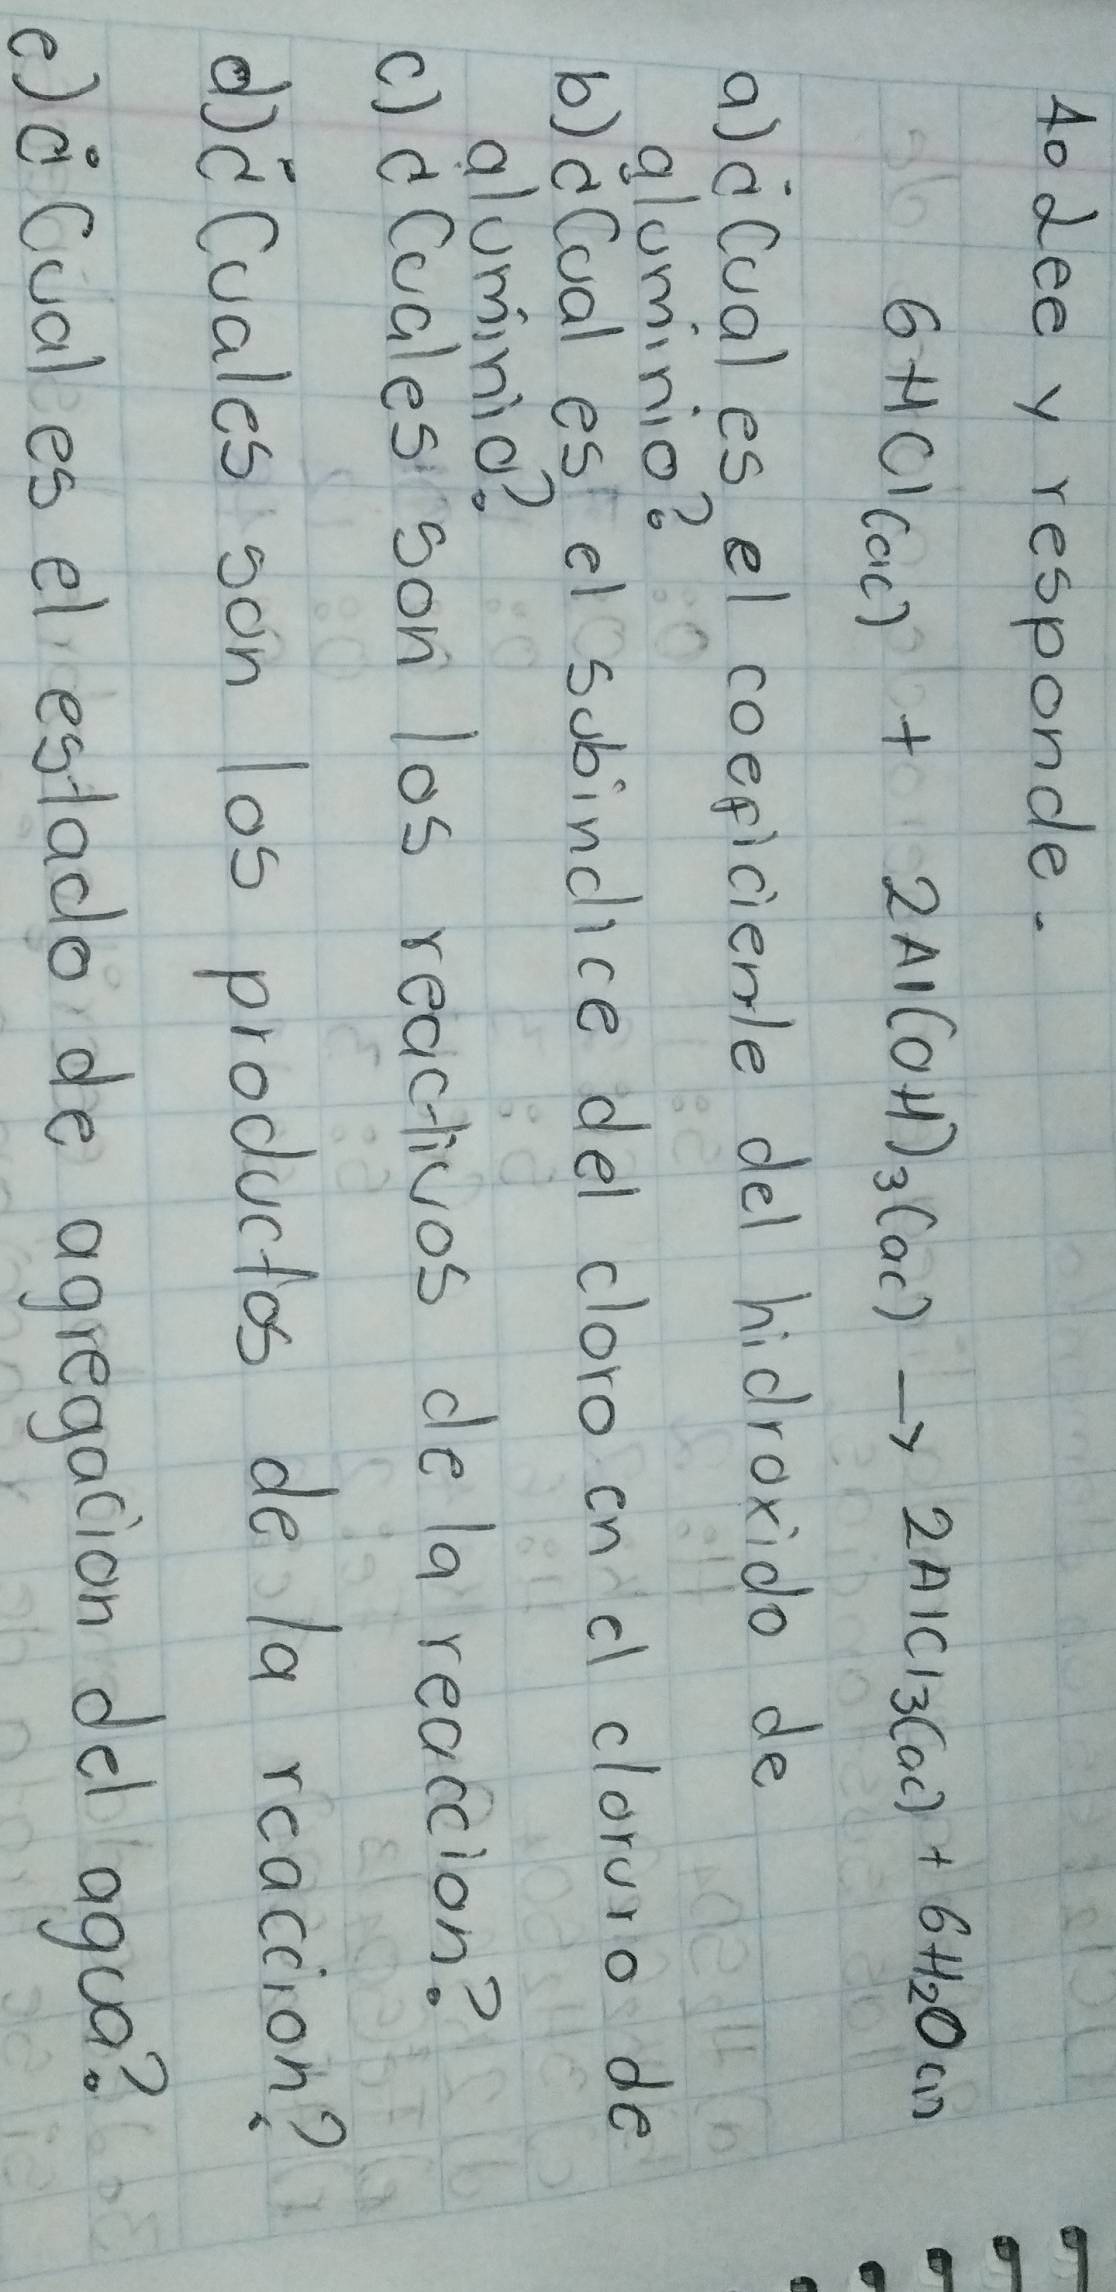 1. Lee y responde.
6HCl(ac) + 2Al(OH)₃(ac) → 2AlCl₃(ac) + 6H₂O(l)
a) ¿Cual es el coeficiente del hidroxido de
aluminio?
b) ¿Cual es el subindice del cloro en el cloruro de
aluminio?
c) ¿Cuales son los reactivos de la reaccion?
d) ¿Cuales son los productos de la reaccion?
e) ¿Cual es el estado de agregacion del agua?